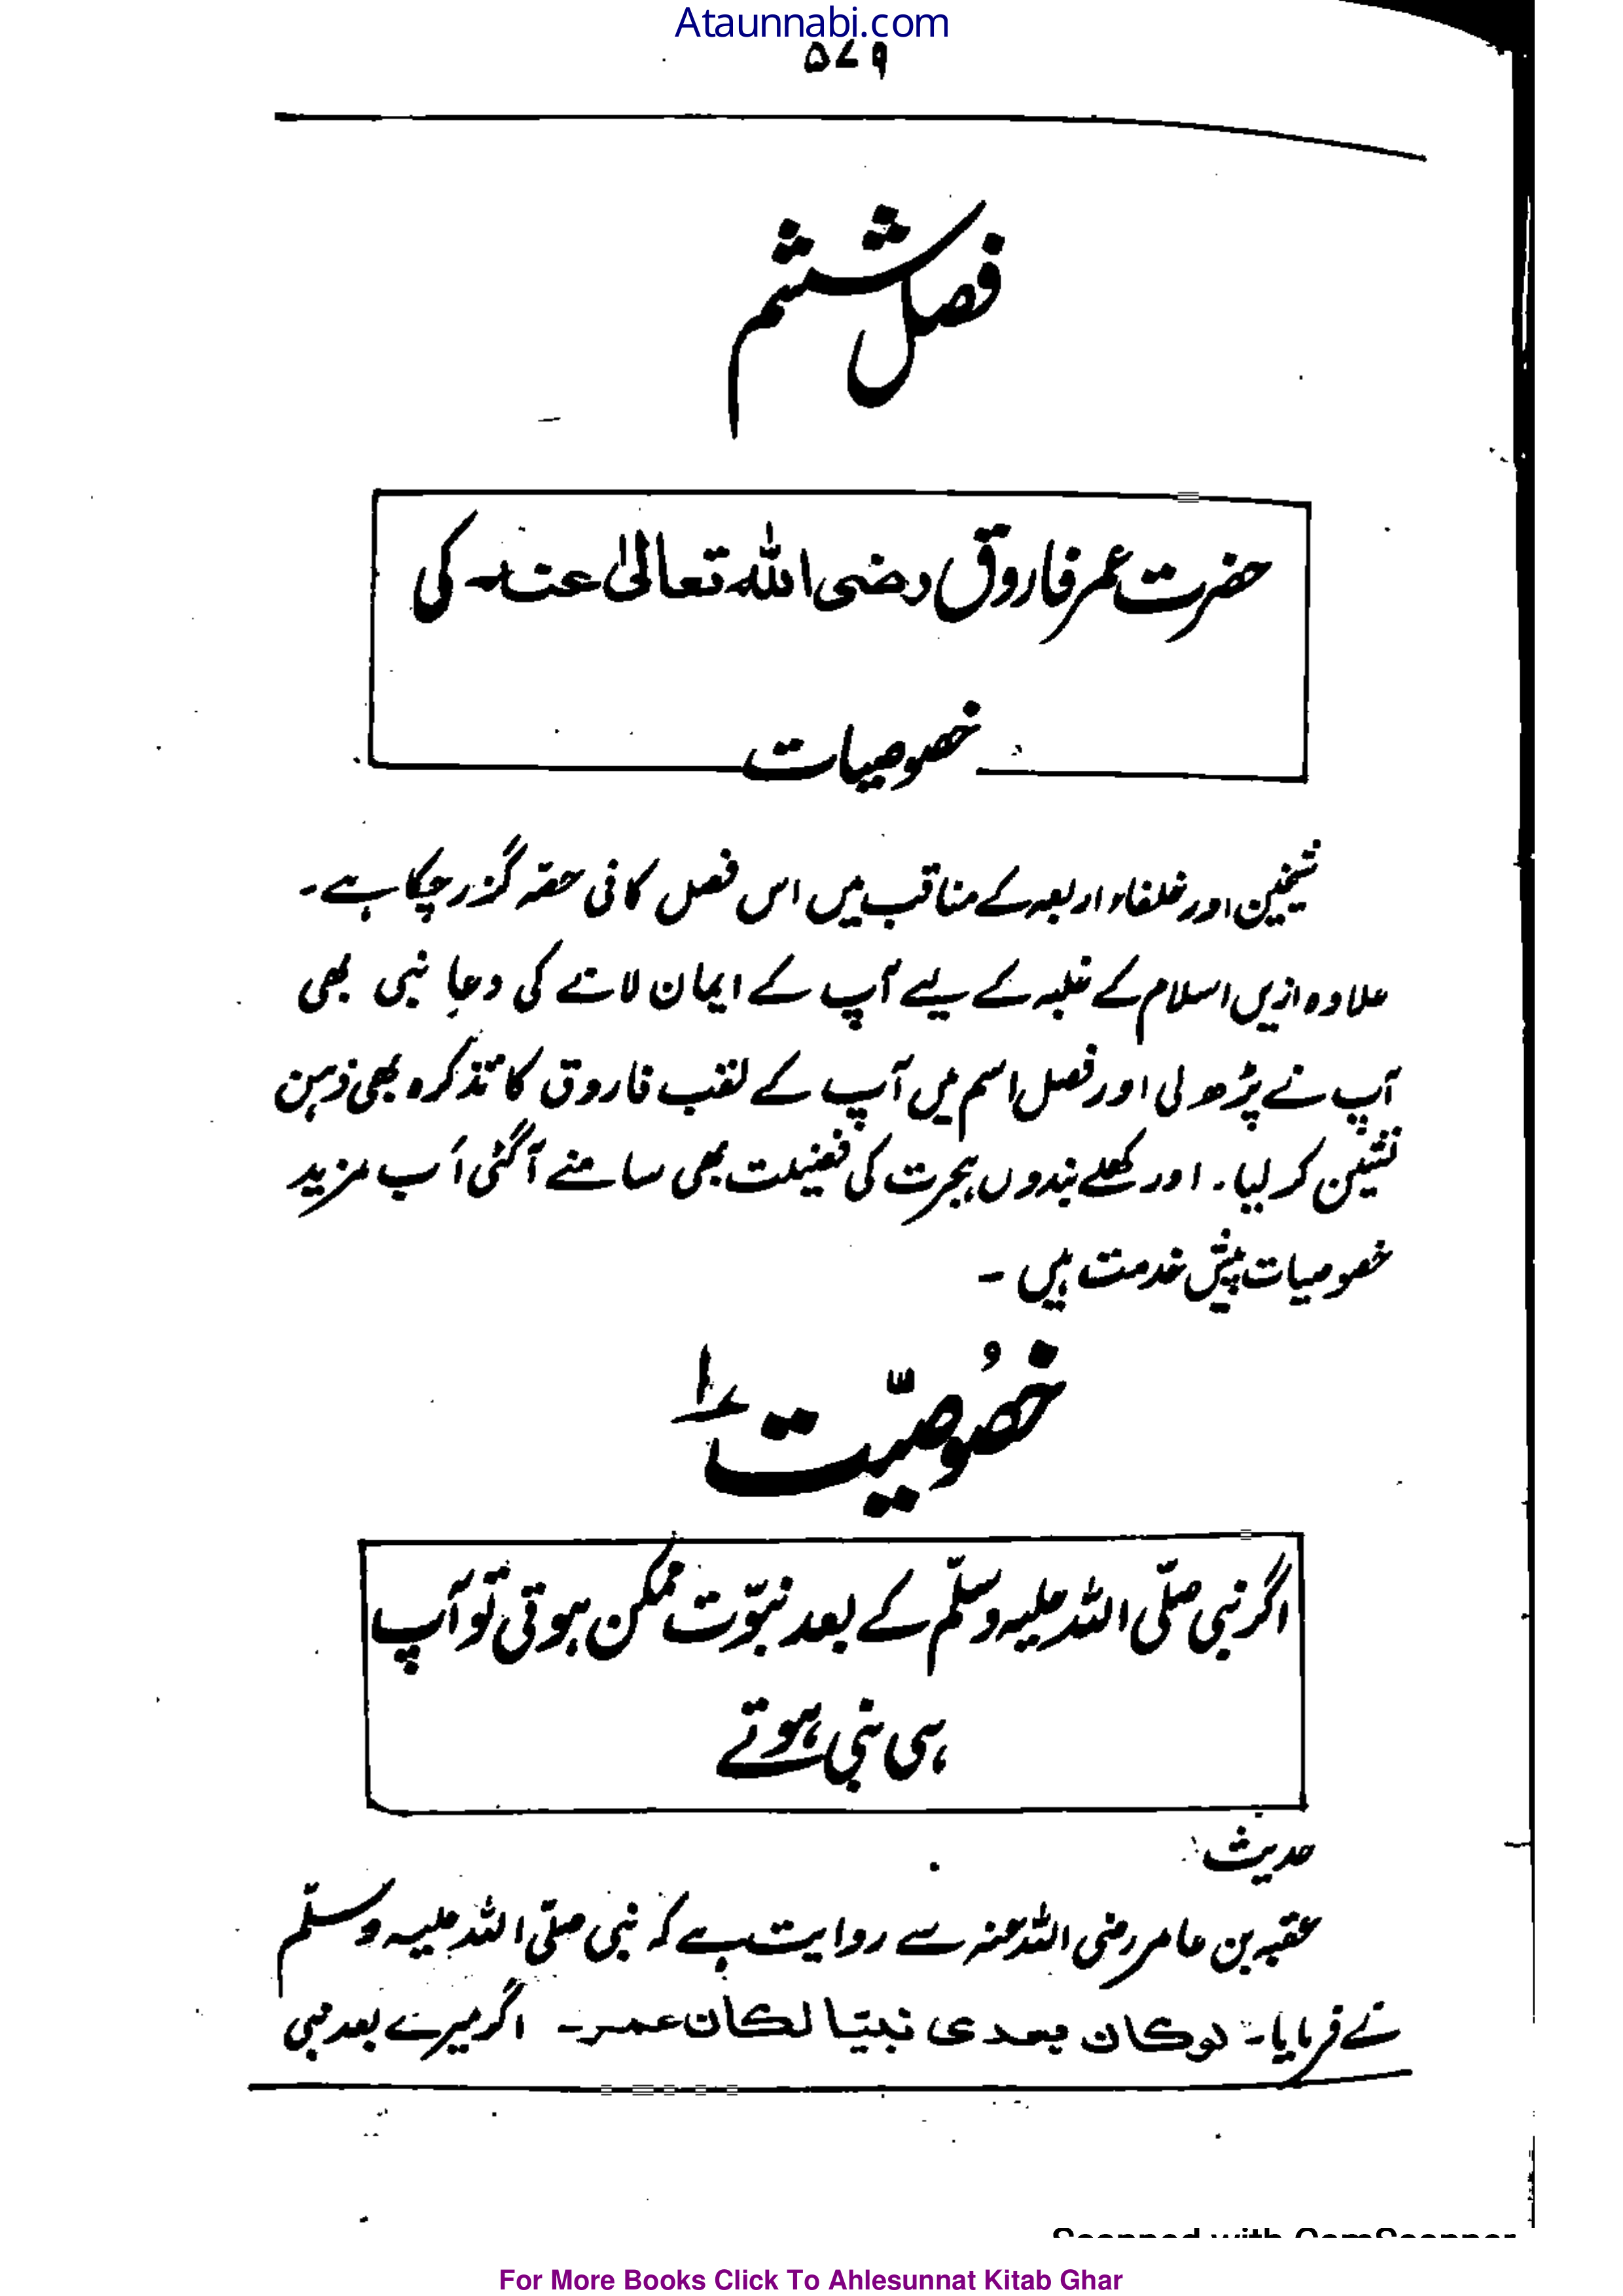 Ataunnabi.com
۵۷۹
فصل ششم
حضرت عمر فاروق رضی اللہ تعالیٰ عنہ کی
خصوصیات
شیخین اور خلفاء اربعہ کے مناقب میں اس فصل کا فی حصّہ گزر چکا ہے۔
علاوہ ازیں اسلام کے غلبہ کے لیے آپ کے ایمان لانے کی دعا نبی بھی
آپ نے پڑھ لی اور فصل اسم میں آپ کے لقب فاروق کا تذکرہ بھی ذہن
نشین کر لیا۔ اور کھلے بندوں ہجرت کی فضیلت بھی سامنے آگئی اَب مزید
خصوصیات پیش خدمت ہیں ۔
خصُوصیّت ۱
اگر نبی صلّی اللہ علیہ وسلّم کے بعد نبوّت ممکن ہوتی تو آپ
ہی نبی ہوتے
حدیث:
عقبہ بن عامر رضی اللہ عنہ سے روایت ہے کہ نبی صلّی اللہ علیہ وسلّم
نے فرمایا۔ لوکان بعدی نبیّا لکان عمر۔ اگر میرے بعد نبی
Scanned with CamScanner
For More Books Click To Ahlesunnat Kitab Ghar